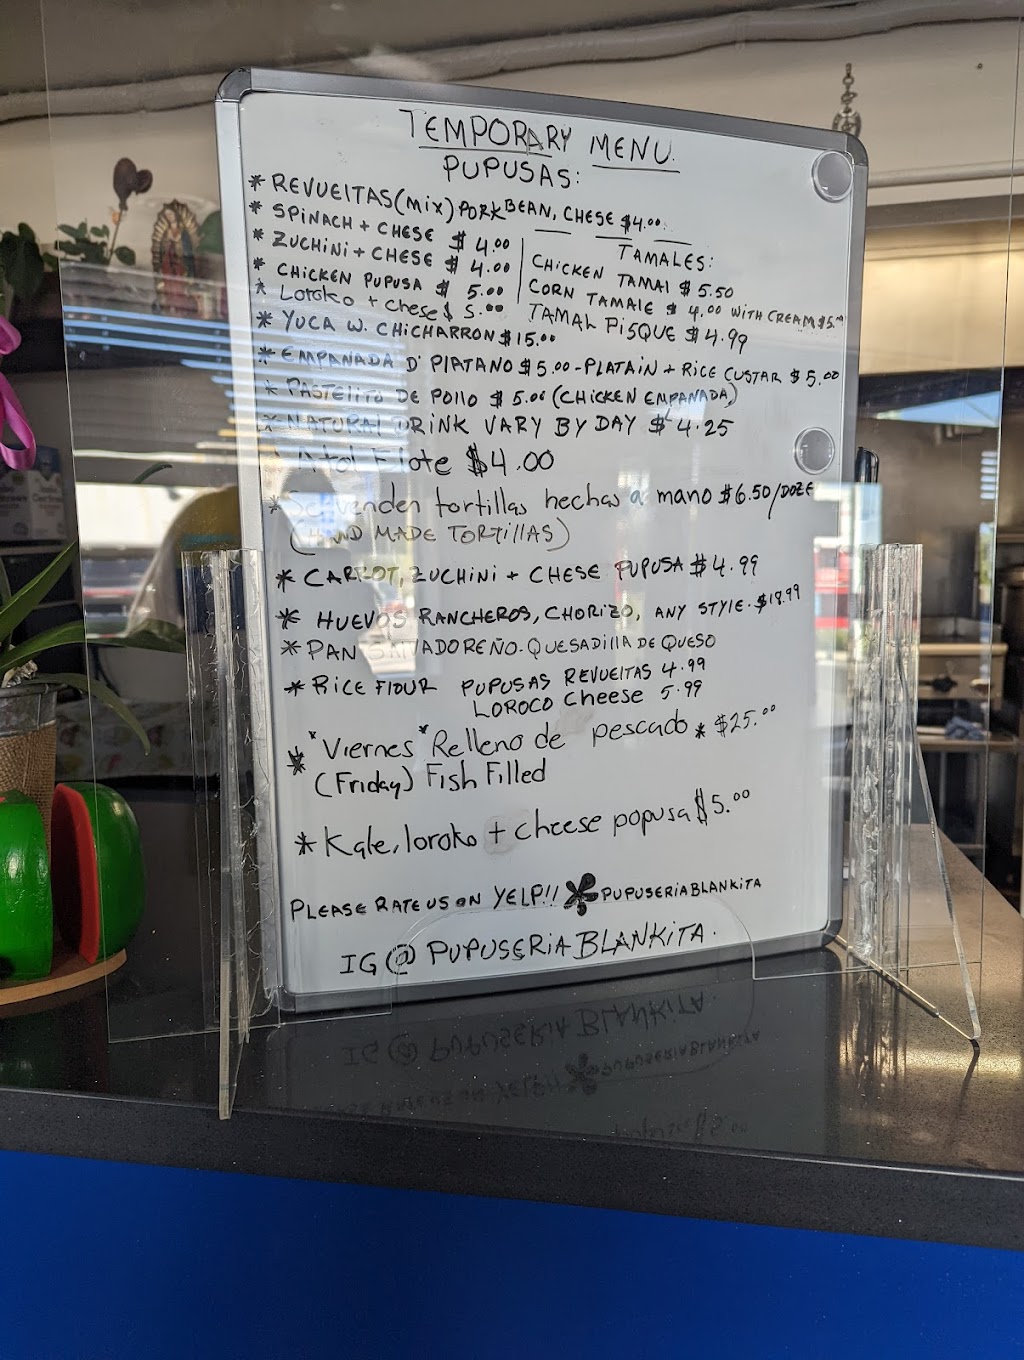 TEMPORARY MENU.
PUPUSAS:
* REVUELTAS (MIX) PORK BEAN, CHESE $4.00.
* SPINACH + CHESE $ 4.00
* ZUCHINI + CHESE $ 4.00
* CHICKEN PUPUSA $ 5.00
* Loroko + chese $ 5.00
TAMALES:
CHICKEN TAMAL $ 5.50
CORN TAMALE $ 4.00 WITH CREAM $5.
TAMAL PISQUE $ 4.99
* YUCA W. CHICHARRON $15.00
* EMPANADA D' PLATANO $5.00 - PLATAIN + RICE CUSTAR $ 5.00
* PASTELITO DE POLLO $ 5.00 (CHICKEN EMPANADA)
* NATURAL DRINK VARY BY DAY $ 4.25
Atol Elote $4.00
* Se venden tortillas hechas a mano $6.50/DOZE
(HAND MADE TORTILLAS)
* CARROT, ZUCHINI + CHESE PUPUSA $4.99
* HUEVOS RANCHEROS, CHORIZO, ANY STYLE. $18.99
* PAN SALVADOREÑO - QUESADILLA DE QUESO
* RICE FLOUR PUPUSAS REVUELTAS 4.99
LOROCO Cheese 5.99
* "Viernes" Relleno de pescado * $25.00
(Friday) Fish Filled
* Kale, loroko + cheese popusa $5.00
PLEASE RATE US ON YELP!! PUPUSERIABLANKITA
IG @ PUPUSERIABLANKITA.